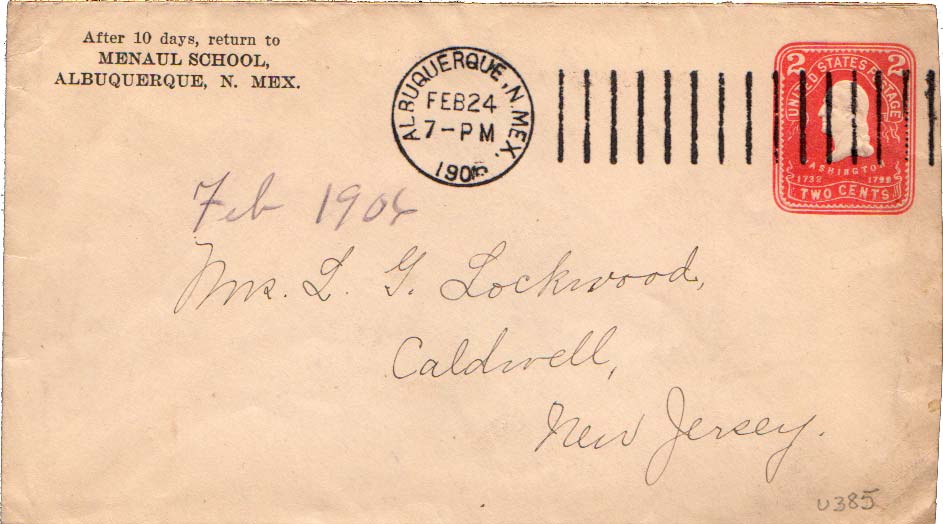 After 10 days, return to
MENAUL SCHOOL,
ALBUQUERQUE, N. MEX.
ALBUQUERQUE, N. MEX.
FEB 24
7-PM
1906
2 2
UNITED STATES POSTAGE
WASHINGTON
1732 1799
TWO CENTS
Feb 1906
Mrs. L. G. Lockwood,
Caldwell,
New Jersey.
U385